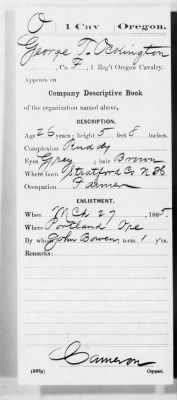 O | 1 Cav | Oregon.
George T. Ockington
, Co. F, 1 Reg't Oregon Cavalry.
Appears on
Company Descriptive Book
of the organization named above.
DESCRIPTION.
Age 26 years; height 5 feet 8 inches.
Complexion Ruddy
Eyes Grey; hair Brown
Where born Stratford Co N H
Occupation Farmer
ENLISTMENT.
When Mch 27, 1865.
Where Portland Ore
By whom John Bowen; term 1 y'rs.
Remarks:
Cameron
Copyist.